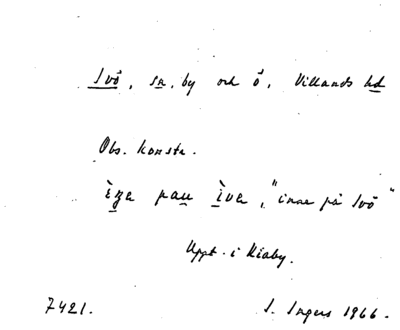 Ivö, sn, by och ö, Villands hd
Obs. konstr.
pau ìva, "inne på Ivö"
Uppt. i Kiaby.
7421. I. Ingers 1966.